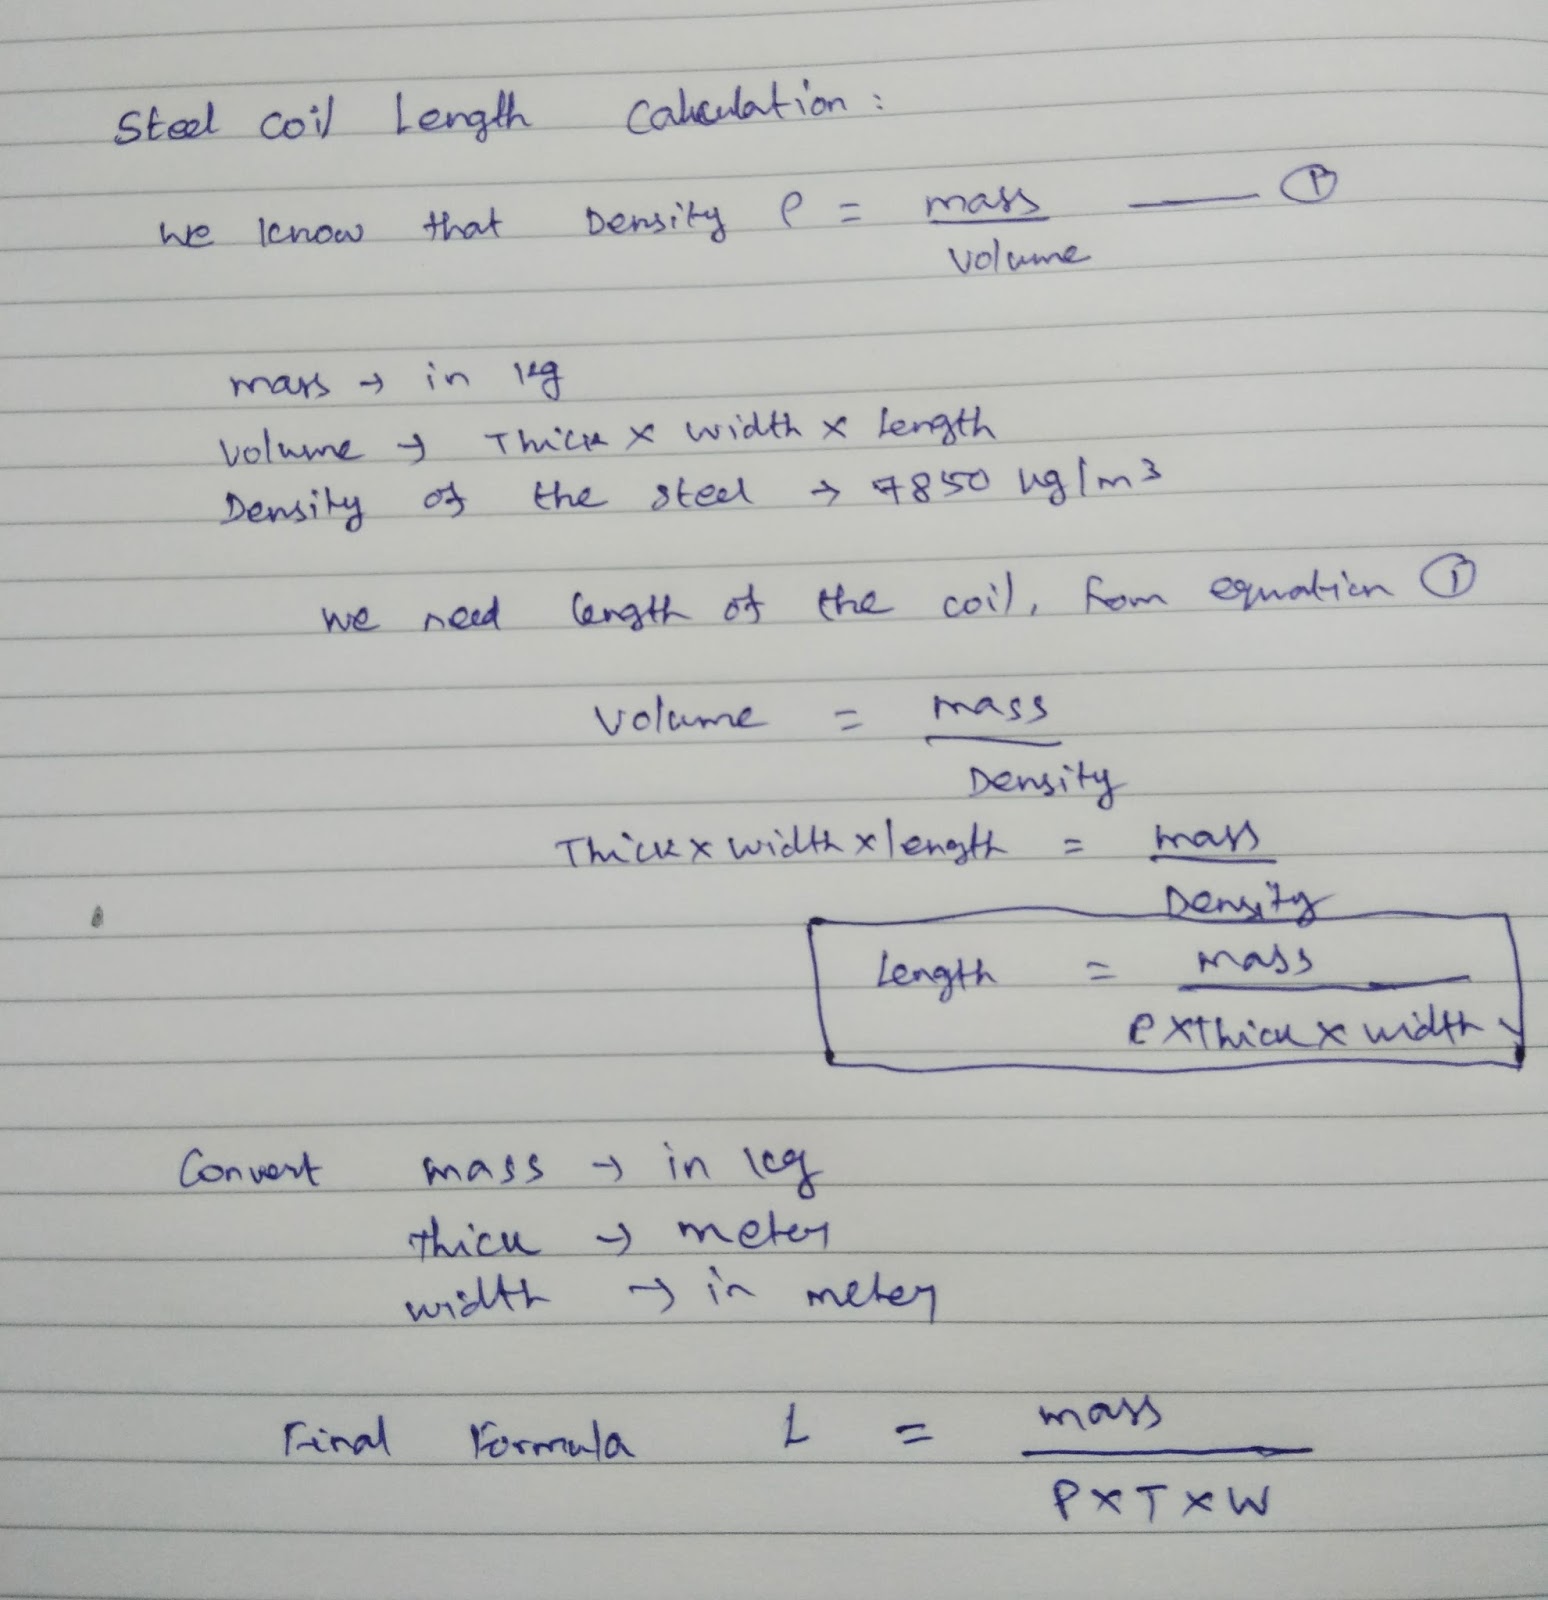 Steel coil Length Calculation:
we know that Density ρ = mass / volume —— ①
mass → in kg
volume → Thick x width x Length
Density of the steel → 7850 kg/m3
we need length of the coil, from equation ①
volume = mass / Density
Thick x width x length = mass / Density
Length = mass / ρ x thick x width
Convert mass → in kg
thick → meter
width → in meter
Final Formula L = mass / ρ x T x W